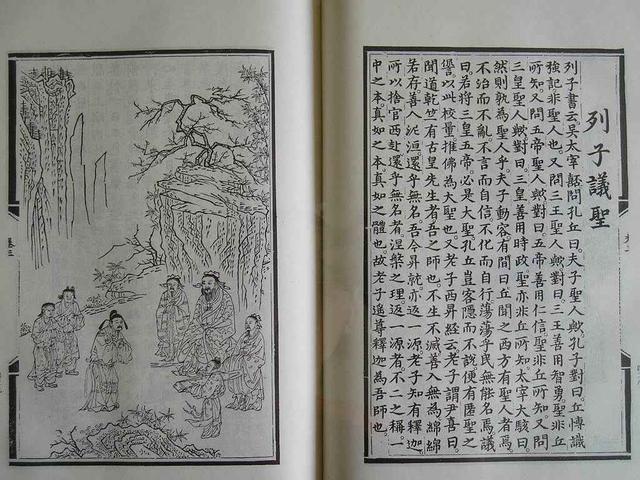 列子議聖
列子書云吳太宰嚭問孔丘曰夫子聖人歟孔子對曰丘博識
強記非聖人也又問三王聖人歟對曰三王善用智勇聖非丘
所知又問五帝聖人歟對曰五帝善用仁信聖非丘所知又問
三皇聖人歟對曰三皇善用時政聖亦非丘所知太宰大駭曰
然則孰為聖人乎夫子動容有間曰丘聞之西方有聖人者焉
不治而不亂不言而自信不化而自行蕩蕩乎民無能名焉議
曰若將三皇五帝必是大聖孔丘豈容隱而不說便有匿聖之
以此校量推佛為大聖也老子西昇經云老子謂尹喜曰
聞道乾竺有古皇先生者吾之師也不生不滅善入無為綿綿
若存善入泥洹還乎無名吾今昇就亦返一源老子知有釋迦
所以捨官西赴還乎無名者涅槃之理返一源者不二之稱
中之本真如之本真如之體也故老子遙尊釋迦為吾師也
卷三